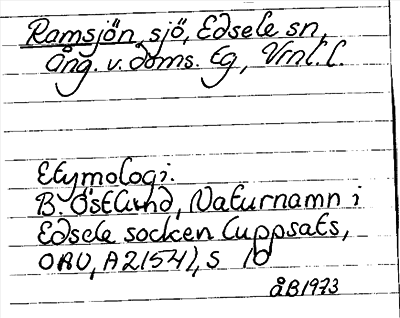 Ramsjön, sjö, Edsele sn,
Ång. v. doms. Eg, Vrnl. l.
Etymologi.
B. Östlund, Naturnamn i
Edsele socken (uppsats,
OAU, A 2154), s 10
åB1973